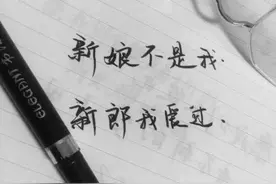 新娘不是我.
新郎我爱过.
ELEGDNT